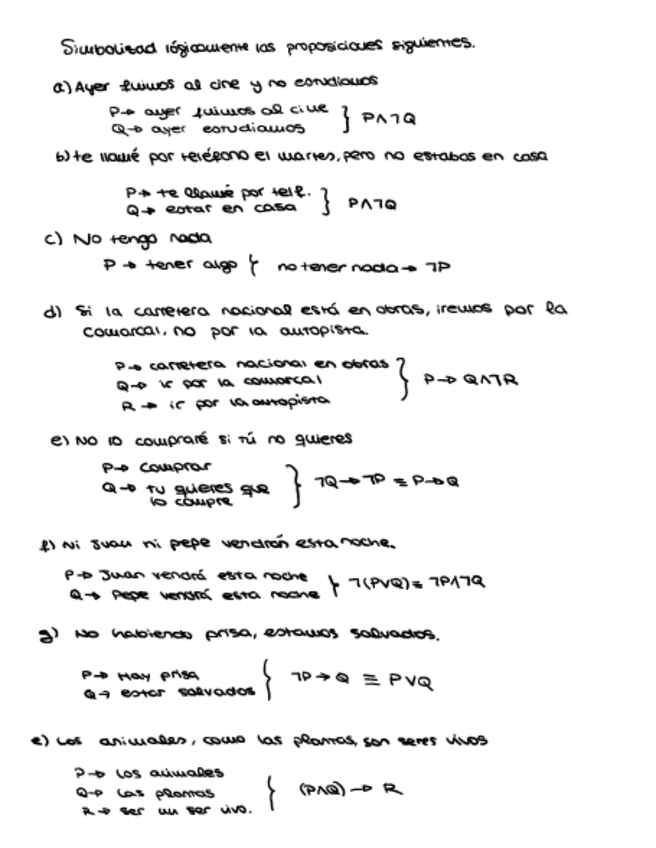 Simbolizad lógicamente las proposiciones siguientes.
a) Ayer fuimos al cine y no estudiamos
P→ ayer fuimos al cine
Q→ ayer estudiamos } P∧¬Q
b) te llamé por teléfono el martes, pero no estabas en casa
P→ te llamé por telf.
Q→ estar en casa } P∧¬Q
c) No tengo nada
P → tener algo { no tener nada → ¬P
d) Si la carretera nacional está en obras, iremos por la
comarcal, no por la autopista.
P→ carretera nacional en obras
Q→ ir por la comarcal } P→ Q∧¬R
R → ir por la autopista
e) No lo compraré si tú no quieres
P→ comprar
Q→ tu quieres que } ¬Q→¬P ≡ P→Q
lo compre
f) Ni Juan ni pepe vendrán esta noche.
P→ Juan vendrá esta noche
Q→ Pepe vendrá esta noche } ¬(P∨Q) ≡ ¬P∧¬Q
g) No habiendo prisa, estamos salvados.
P→ Hay prisa
Q→ estar salvados { ¬P→Q ≡ P∨Q
e) Los animales, como las plantas, son seres vivos
P→ Los animales
Q→ Las plantas { (P∧Q)→ R
R→ ser un ser vivo.